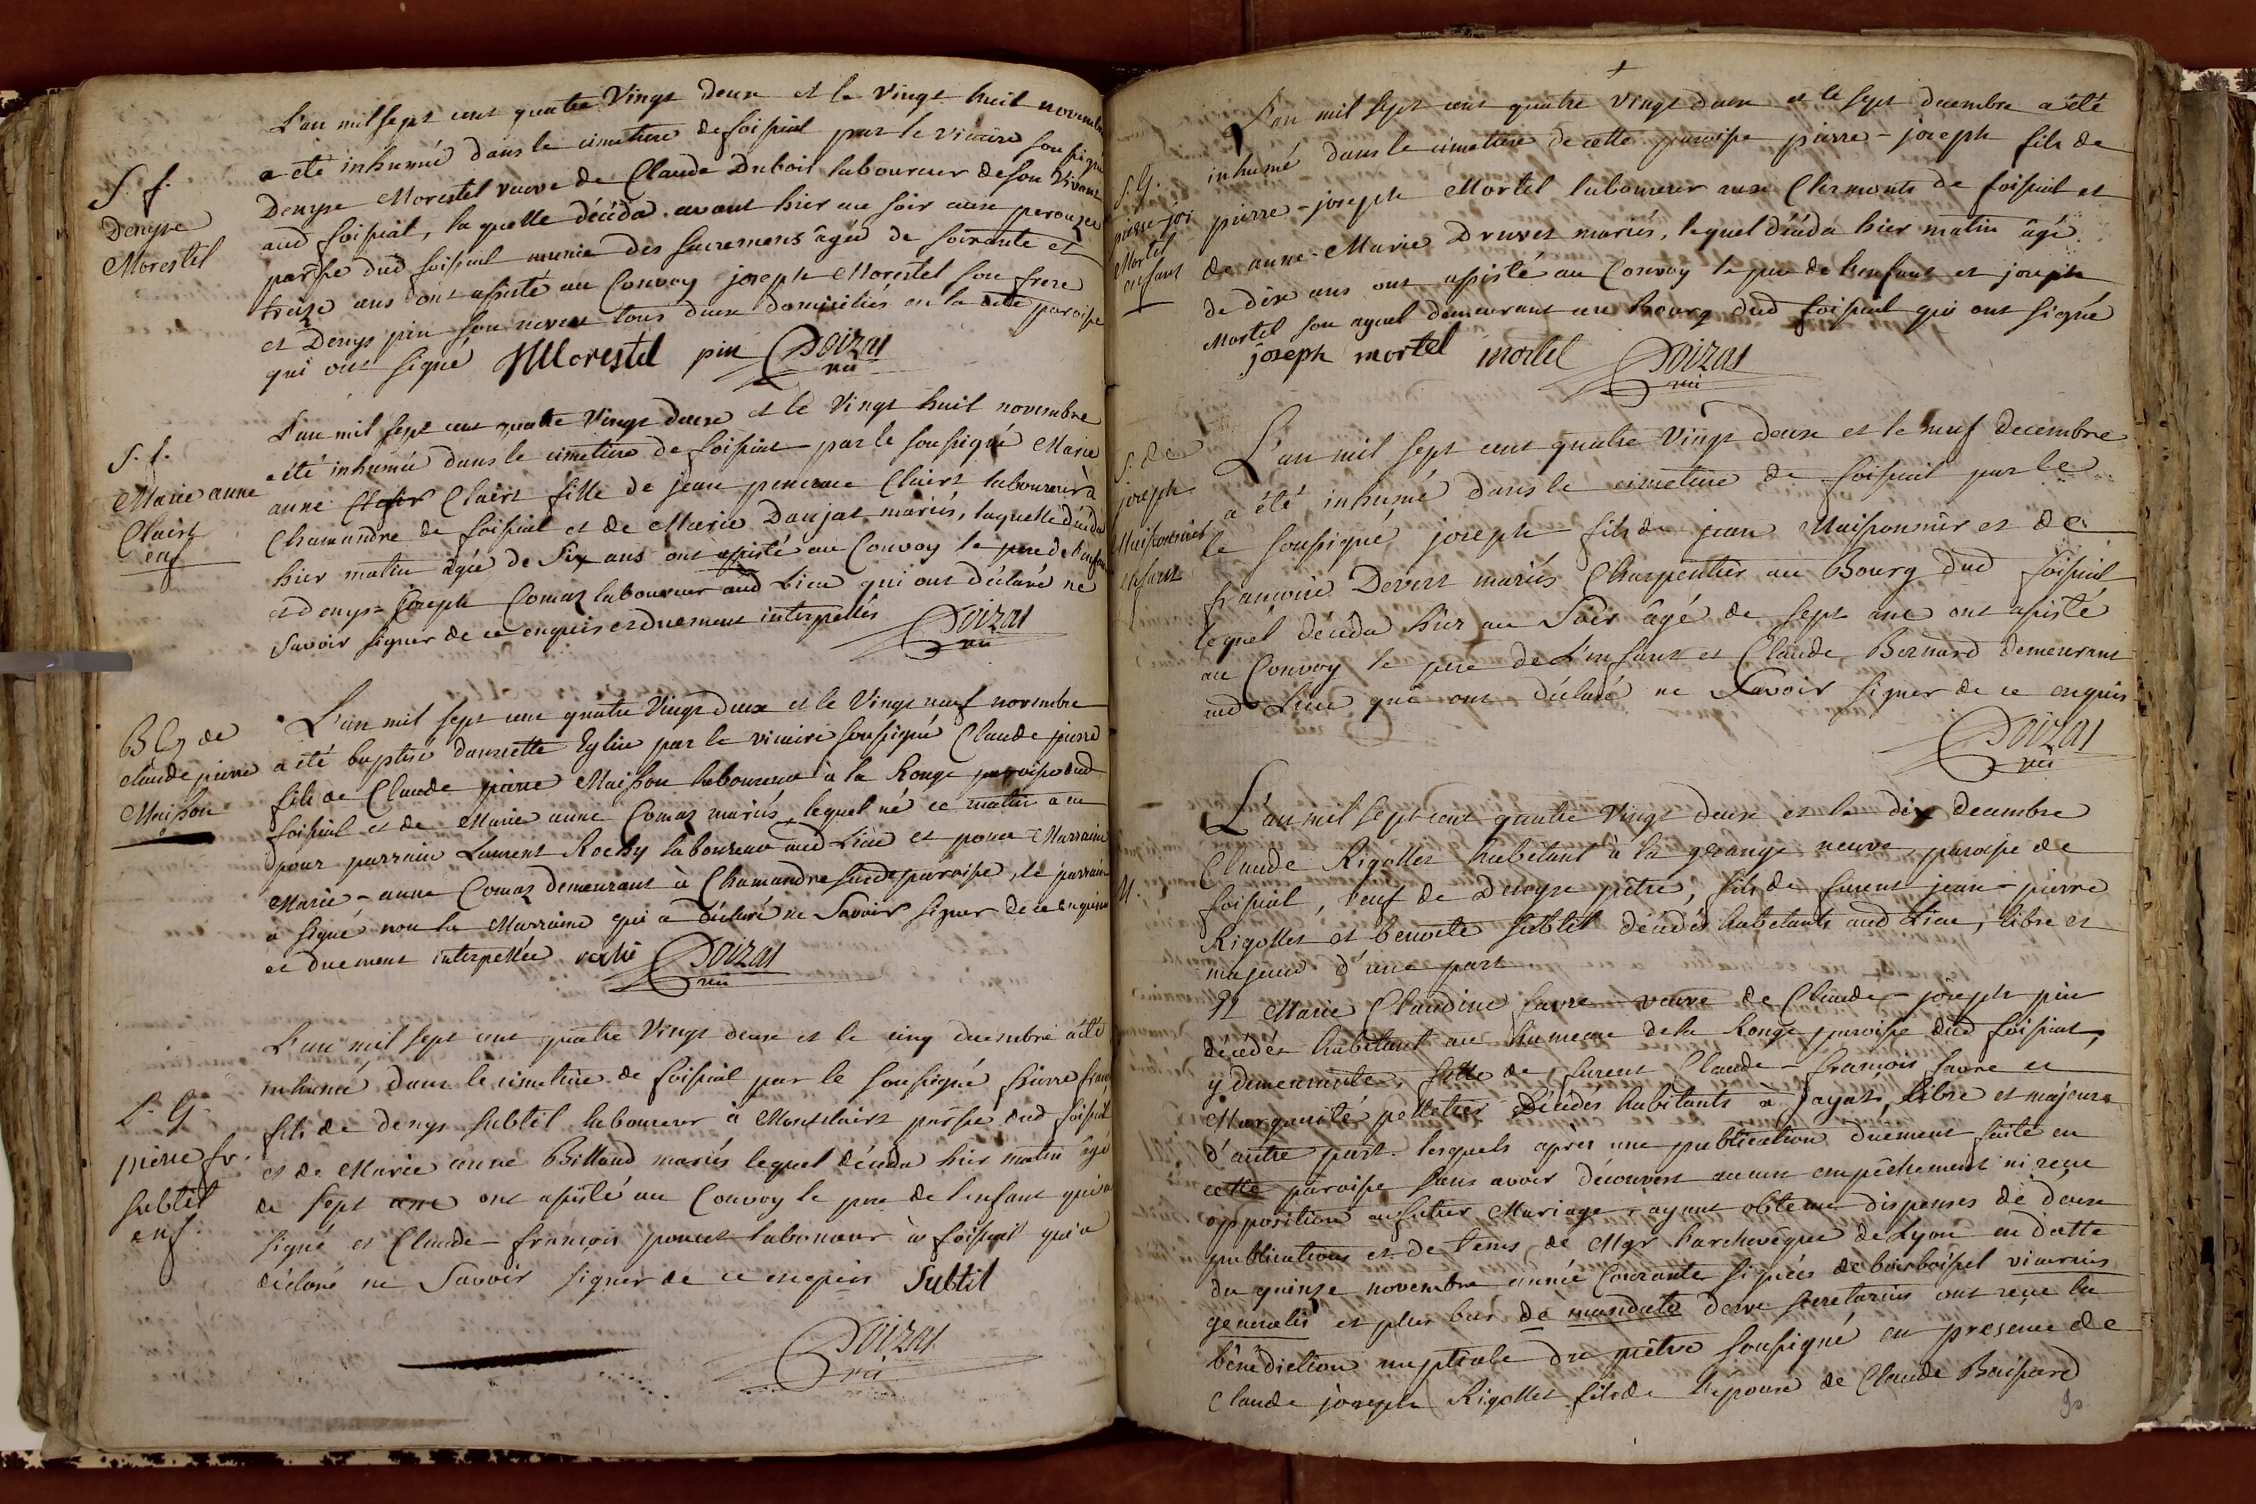 L'an mil sept cent quatre Vingt deux et le Vingt huit novembre
a eté inhumée dans le cimetiere de foissiat par le vicaire soussigné
S. f.
Denyse
Morestel
Denyse Morestel veuve de Claude Dubois laboureur de son vivant
aud foissiat, laquelle déceda avant hier au soir aux perouzes
parsse dud foissiat munie des sacremens âgée de soixante et
treize ans ont assisté au Convoy joseph Morestel son frere
et Denys pin son neveu tous deux domiciliés en la cette paroisse
qui ont signé JMorestel pin Doizas
vic
L'an mil sept cent quatre Vingt deux et le Vingt huit novembre
a été inhumée dans le cimetiere de foissiat par le soussigné Marie
S. f.
Marie anne
Clairt
enf
anne Clairt fille de jean Clairt laboureur à
Chamandre de foissiat et de Marie Daujat mariés, laquelle déceda
hier matin âgée de Six ans ont assisté au Convoy le pere de l'enfant
et denys-joseph Comas laboureur aud Lieu qui ont déclaré ne
Savoir signer de ce enquis et duement interpellés Doizas
vic
L'an mil sept cent quatre Vingt deux et le Vingt neuf novembre
B C de
claude pierre
Maisson
a été baptisé dans cette Eglise par le vicaire soussigné Claude pierre
fils de Claude pierre Maisson laboureur à la Ronge paroisse dud
foissiat et de Marie anne Comas mariés, lequel né ce matin a eu
pour parrain Laurent Rochy laboureur aud Lieu et pour Marraine
Marie-anne Comas demeurant à Chamandre susde paroisse, le parrain
a signé non la Marraine qui a déclaré ne Savoir signer de ce enquise
et duement interpellée rochi Doizas
vic
L'an mil sept cent quatre Vingt deux et le cinq decembre a été
inhumé dans le cimetiere de foissiat par le soussigné pierre fran
S. G.
pierre fr.
subtil
enf.
fils de denys subtil laboureur à Montclairt parsse dud foissiat
et de Marie anne Billoud mariés lequel déceda hier matin âgé
de sept ans ont assisté au Convoy le pere de l'enfant qui a
signé et Claude-françois poncet laboureur à foissiat qui a
déclaré ne Savoir signer de ce enquis Subtil
Doizas
vic
L'an mil sept cent quatre vingt deux et le sept decembre a été
inhumé dans le cimetiere de cette paroisse pierre-joseph fils de
S. G.
pierre-jos
Mortel
enfant
pierre-joseph Mortel laboureur aux Clermonts de foissiat et
de anne-Marie Druvet mariés, lequel déceda hier matin âgé
de dix ans ont assisté au Convoy le pere de l'enfant et joseph
Mortel son ayeul demeurant au bourg dud foissiat qui ont signé
joseph mortel mortel Doizas
vic
L'an mil sept cent quatre Vingt deux et le neuf Decembre
S. de
joseph
Maissonnier
enfant
a été inhumé dans le cimetiere de foissiat par le
le soussigné joseph fils de jean Maissonnier et de
françoise Devert mariés Charpentier au Bourg dud foissiat
lequel déceda hier au Soir âgé de sept ans ont assisté
au Convoy le pere de L'enfant et Claude Bernard demeurant
aud Lieu qui ont déclaré ne Savoir signer de ce enquis
Doizas
vic
L'an mil sept cent quatre Vingt deux et le dix decembre
M.
Claude Rigollet habitant à la grange neuve, paroisse de
foissiat, veuf de Denyse pitre, fils de furent jean-pierre
Rigollet et benoite subtil décédés habitants aud Lieu, libre et
majeur d'une part
Et Marie Claudine favre veuve de Claude-joseph pin
décédé habitant au hameau de la Ronge paroisse dud foissiat,
y demeurante, fille de furent Claude-françois favre et
Marguerite pelletier Décédés habitants à jayat, libre et majeure
d'autre part. lesquels après une publication duement faite en
cette paroisse sans avoir découvert aucun empêchement ni reçu
opposition au futur Mariage, ayant obtenu dispenses de deux
publications et de tems de Mgr l'archevêque de Lyon en datte
du quinze novembre année Courante signées de boisboissel vicarius
generalis et plus bas de mandato secretarius ont reçu la
bénédiction nuptiale du prêtre soussigné en presence de
Claude joseph Rigollet fils de l'epoux de Claude Boissard
90